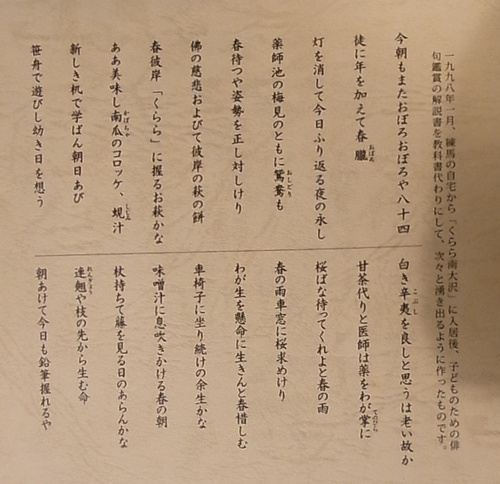 一九九八年一月、練馬の自宅から「くらら南大沢」に入居後、子どものための俳
句鑑賞の解説書を教科書代わりにして、次々と湧き出るように作ったものです。
今朝もまたおぼろおぼろや八十四
徒に年を加えて春朧
灯を消して今日ふり返る夜の永し
薬師池の梅見のともに鴛鴦も
春待つや姿勢を正し対しけり
佛の慈悲およびて彼岸の萩の餅
春彼岸「くらら」に握るお萩かな
ああ美味し南瓜のコロッケ、蜆汁
新しき机で学ばん朝日あび
笹舟で遊びし幼き日を想う
白き辛夷を良しと思うは老い故か
甘茶代りと医師は薬をわが掌に
桜ばな待ってくれよと春の雨
春の雨車窓に桜求めけり
わが生を懸命に生きんと春惜しむ
車椅子に坐り続けの余生かな
味噌汁に息吹きかける春の朝
杖持ちて藤を見る日のあらんかな
連翹や枝の先から生む命
朝あけて今日も鉛筆握れるや